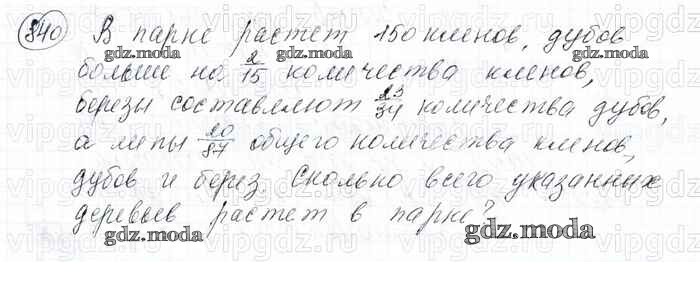 840 В парке растет 150 кленов, дубов
больше на 2/15 количества кленов,
березы составляют 23/34 количества дубов,
а липы 20/87 общего количества кленов,
дубов и берез. Сколько всего указанных
деревьев растет в парке?
gdz.moda
gdz.moda
gdz.moda
gdz.moda
gdz.moda
gdz.moda
vipgdz